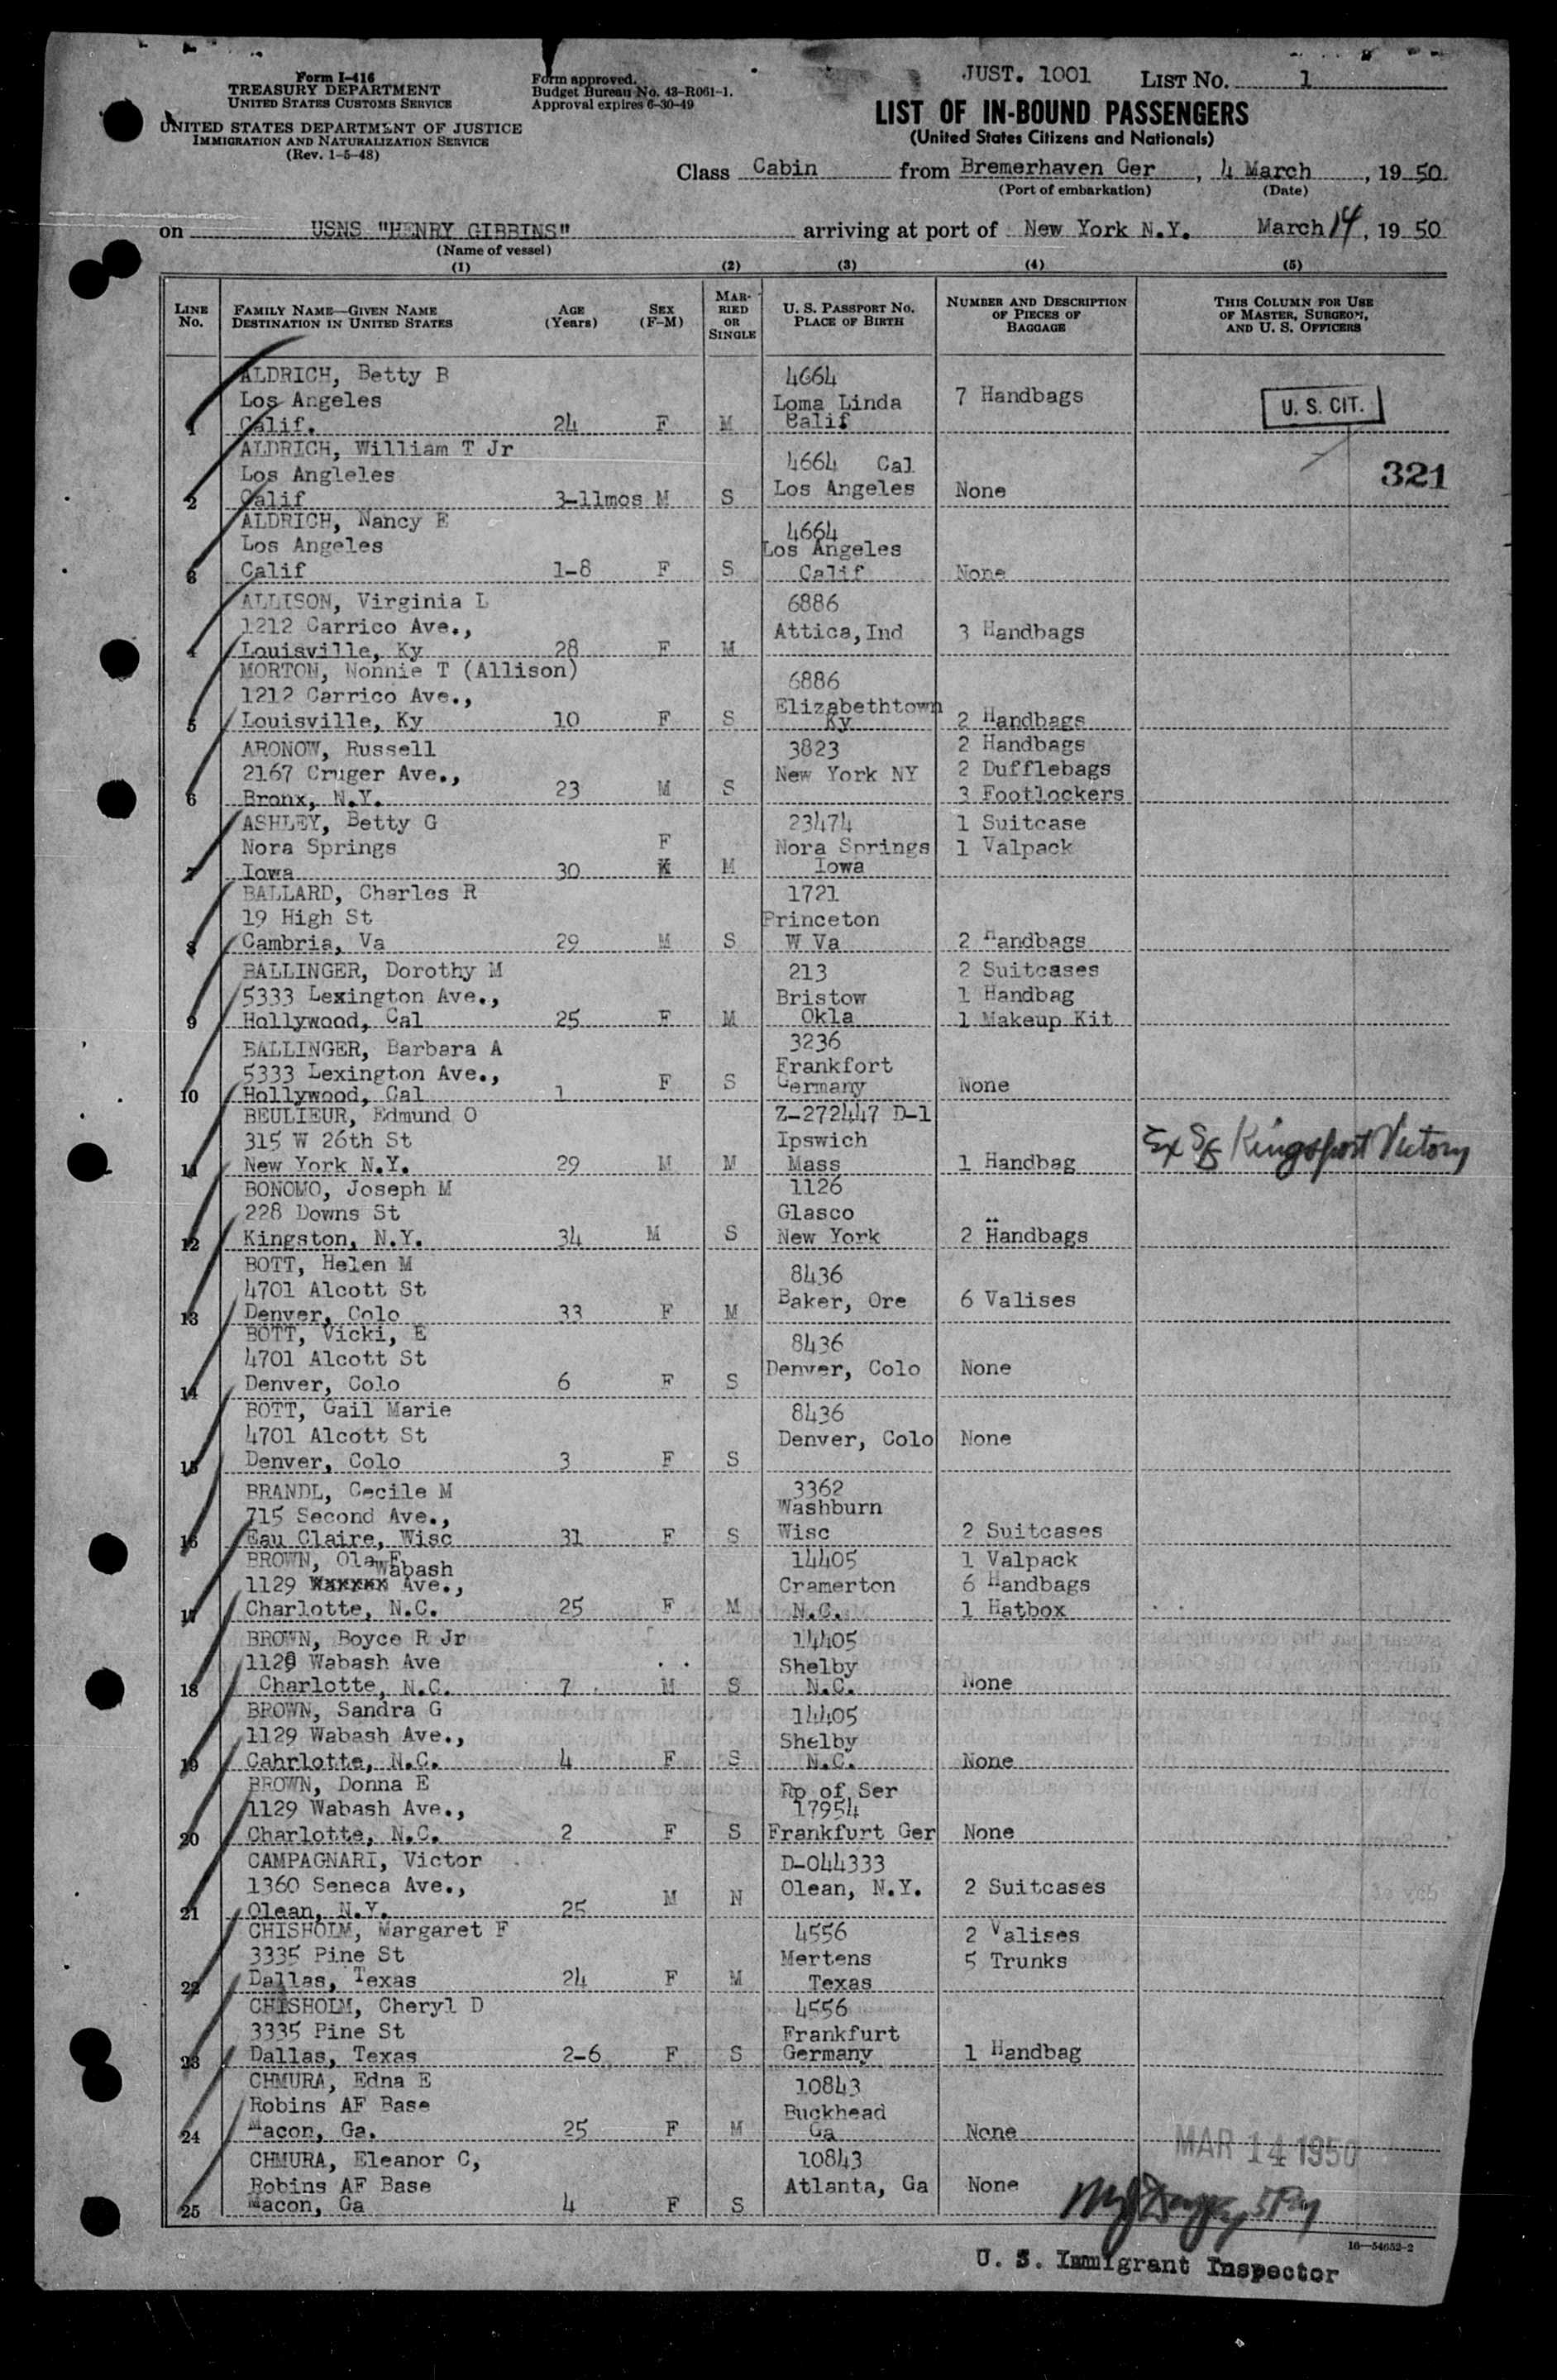 Form I-416
TREASURY DEPARTMENT
UNITED STATES CUSTOMS SERVICE
UNITED STATES DEPARTMENT OF JUSTICE
IMMIGRATION AND NATURALIZATION SERVICE
(Rev. 1-5-48)
Form approved.
Budget Bureau No. 43-R061-1.
Approval expires 6-30-49
JUST. 1001 LIST NO. 1
LIST OF IN-BOUND PASSENGERS
(United States Citizens and Nationals)
Class Cabin from Bremerhaven Ger, 4 March, 19 50
(Port of embarkation) (Date)
on USNS "HENRY GIBBINS" arriving at port of New York N.Y. March 14, 19 50
(Name of vessel)
(1) (2) (3) (4) (5)
LINE No. FAMILY NAME—GIVEN NAME DESTINATION IN UNITED STATES AGE (Years) SEX (F-M) MARRIED OR SINGLE U. S. PASSPORT NO. PLACE OF BIRTH NUMBER AND DESCRIPTION OF PIECES OF BAGGAGE THIS COLUMN FOR USE OF MASTER, SURGEON, AND U. S. OFFICERS
ALDRICH, Betty B 4664
Los Angeles Loma Linda 7 Handbags U. S. CIT.
1 Calif. 24 F M Calif
ALDRICH, William T Jr 4664 Cal
Los Angleles Los Angeles None 321
2 Calif 3-11mos M S
ALDRICH, Nancy E 4664
Los Angeles Los Angeles
3 Calif 1-8 F S Calif None
ALLISON, Virginia L 6886
1212 Carrico Ave., Attica, Ind 3 Handbags
4 Louisville, Ky 28 F M
MORTON, Nonnie T (Allison) 6886
1212 Carrico Ave., Elizabethtown
5 Louisville, Ky 10 F S Ky 2 Handbags
ARONOW, Russell 3823 2 Handbags
2167 Cruger Ave., New York NY 2 Dufflebags
6 Bronx, N.Y. 23 M S 3 Footlockers
ASHLEY, Betty G 23474 1 Suitcase
Nora Springs F Nora Springs 1 Valpack
7 Iowa 30 M Iowa
BALLARD, Charles R 1721
19 High St Princeton
8 Cambria, Va 29 M S W Va 2 Handbags
BALLINGER, Dorothy M 213 2 Suitcases
5333 Lexington Ave., Bristow 1 Handbag
9 Hollywood, Cal 25 F M Okla 1 Makeup Kit
BALLINGER, Barbara A 3236
5333 Lexington Ave., Frankfort
10 Hollywood, Cal 1 F S Germany None
BEULIEUR, Edmund O Z-272447 D-1
315 W 26th St Ipswich Ex SS Kingsport Victory
11 New York N.Y. 29 M M Mass 1 Handbag
BONOMO, Joseph M 1126
228 Downs St Glasco
12 Kingston, N.Y. 34 M S New York 2 Handbags
BOTT, Helen M 8436
4701 Alcott St Baker, Ore 6 Valises
13 Denver, Colo 33 F M
BOTT, Vicki, E 8436
4701 Alcott St Denver, Colo None
14 Denver, Colo 6 F S
BOTT, Gail Marie 8436
4701 Alcott St Denver, Colo None
15 Denver, Colo 3 F S
BRANDL, Cecile M 3362
715 Second Ave., Washburn
16 Eau Claire, Wisc 31 F S Wisc 2 Suitcases
BROWN, Ola F 14405 1 Valpack
1129 Wabash xxxxxx Ave., Cramerton 6 Handbags
17 Charlotte, N.C. 25 F M N.C. 1 Hatbox
BROWN, Boyce R Jr 14405
1129 Wabash Ave Shelby
18 Charlotte, N.C. 7 M S N.C. None
BROWN, Sandra G 14405
1129 Wabash Ave., Shelby
19 Cahrlotte, N.C. 4 F S N.C. None
BROWN, Donna E Rp of Ser
1129 Wabash Ave., 17954
20 Charlotte, N.C. 2 F S Frankfurt Ger None
CAMPAGNARI, Victor D-044333
1360 Seneca Ave., Olean, N.Y. 2 Suitcases
21 Olean, N.Y. 25 M N
CHISHOLM, Margaret F 4556 2 Valises
3335 Pine St Mertens 5 Trunks
22 Dallas, Texas 24 F M Texas
CHISHOLM, Cheryl D 4556
3335 Pine St Frankfurt
23 Dallas, Texas 2-6 F S Germany 1 Handbag
CHMURA, Edna E 10843
Robins AF Base Buckhead
24 Macon, Ga. 25 F M Ga None
MAR 14 1950
CHMURA, Eleanor C, 10843
Robins AF Base Atlanta, Ga None
25 Macon, Ga 4 F S
16—54652-2
U. S. Immigrant Inspector